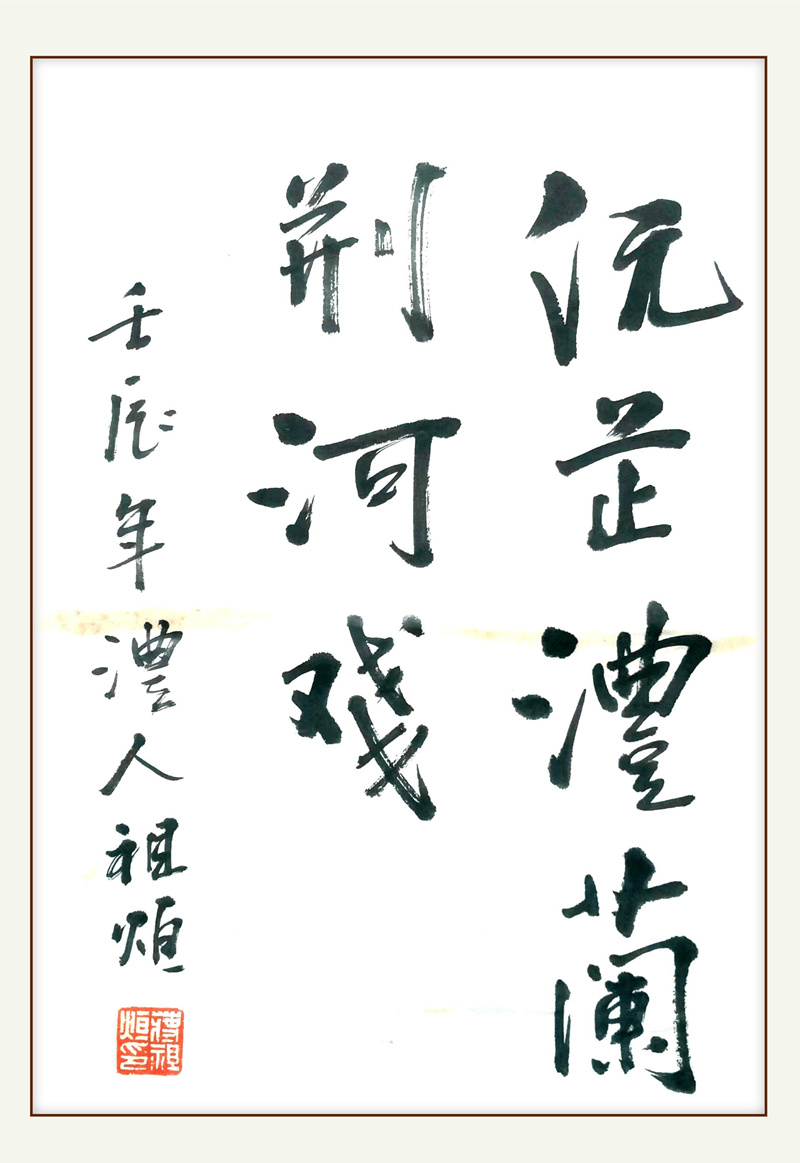 沅芷澧蘭
荆河戏
壬辰年澧人祖烜
蔣祖
烜印